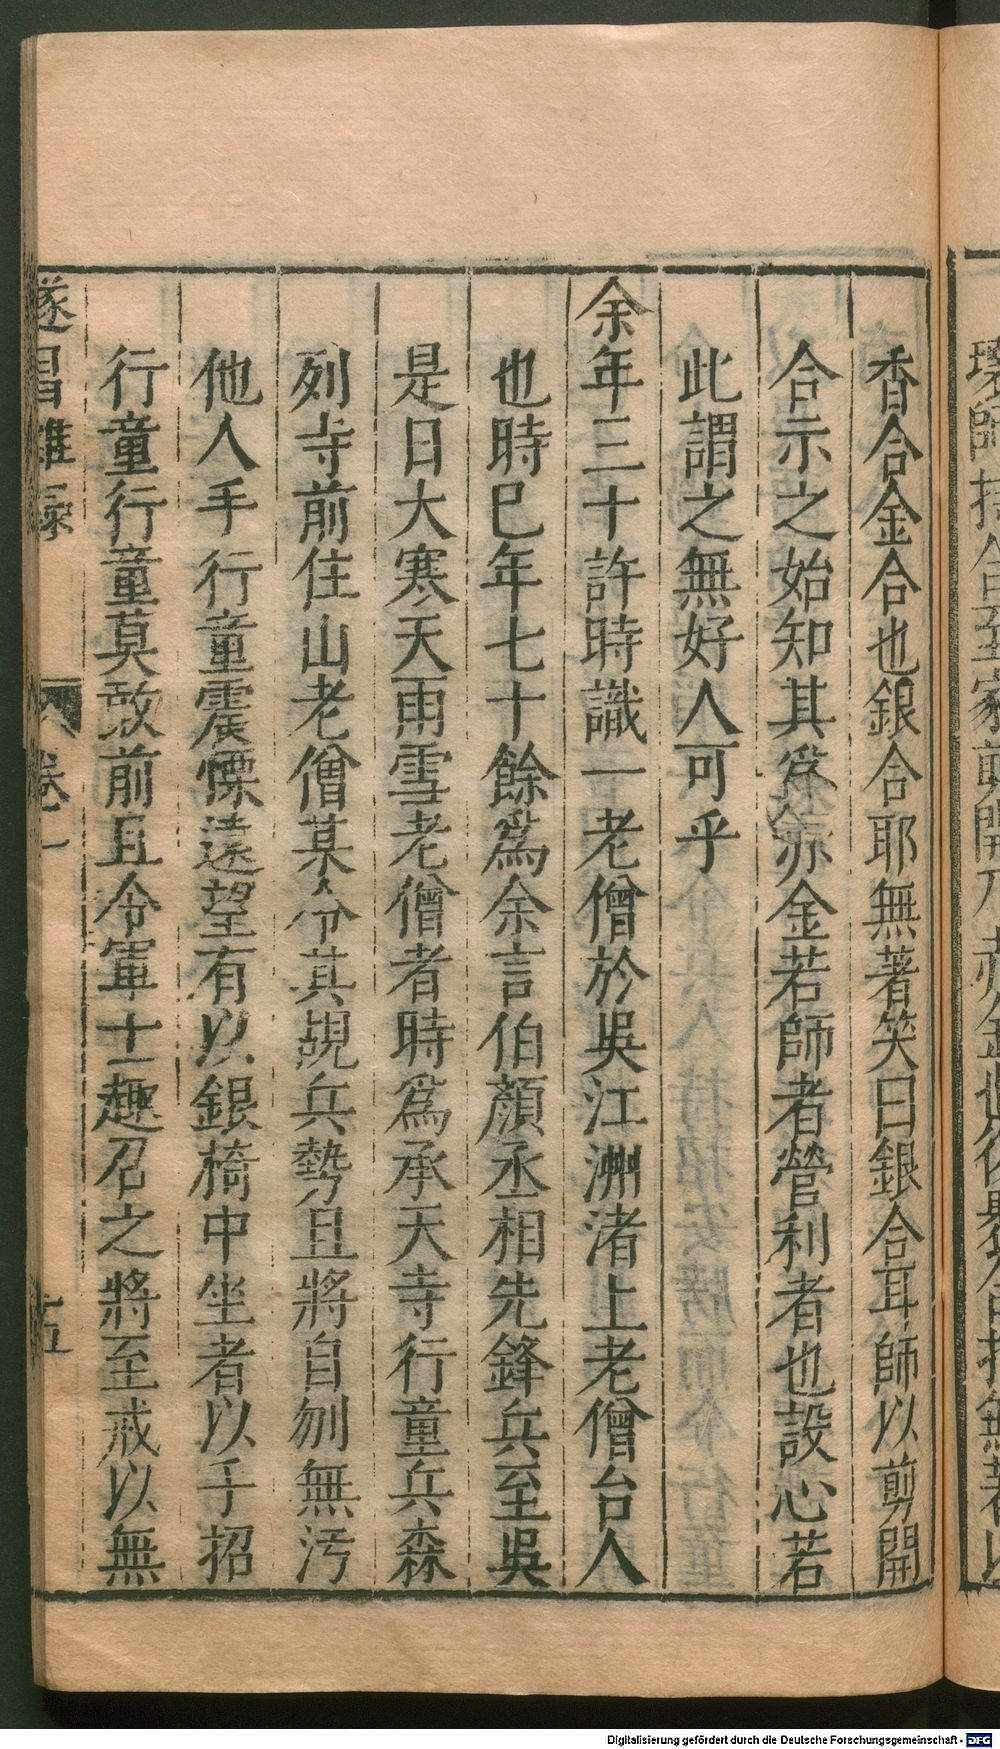 香合金合也銀合耶無著笑曰銀合耳師以剪開
合示之始知其爲亦金若師者營利者也設心若
此謂之無好人可乎
余年三十許時識一老僧於吳江洲渚上老僧台人
也時巳年七十餘爲余言伯顏丞相先鋒兵至吳
是日大寒天雨雪老僧者時爲承天寺行童兵森
列寺前住山老僧某令其覘兵勢且將自刎無汚
他人手行童震慄遠望有以銀椅中坐者以手招
行童行童莫敢前且令軍士趣召之將至戒以無
遂昌雜錄
卷一
十五
Digitalisierung gefördert durch die Deutsche Forschungsgemeinschaft - DFG